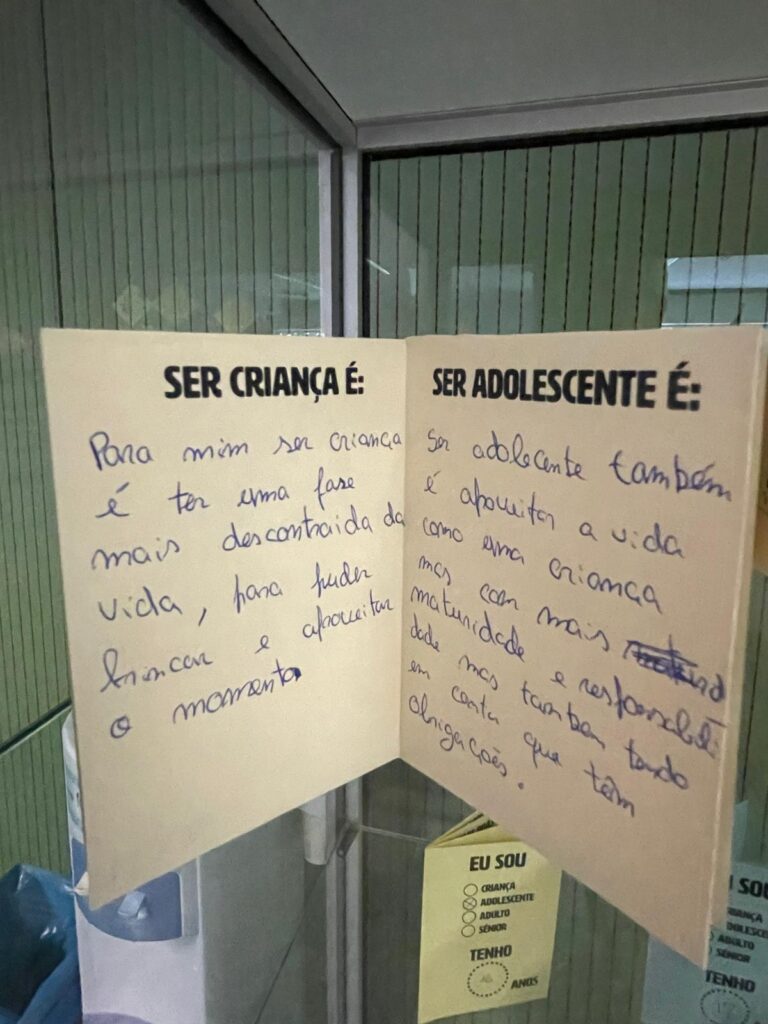 SER CRIANÇA É:
Para mim ser criança
é ter uma fase
mais descontraida da
vida, para puder
brincar e aproveitar
o momento
SER ADOLESCENTE É:
Ser adolecente também
é aproveitar a vida
como uma criança
mas com mais
maturidade e responsabili
dade mas também tendo
em conta que têm
obrigações.
EU SOU
CRIANÇA
ADOLESCENTE
ADULTO
SÉNIOR
TENHO
ANOS
SOU
ADULTO
SÉNIOR
TENHO